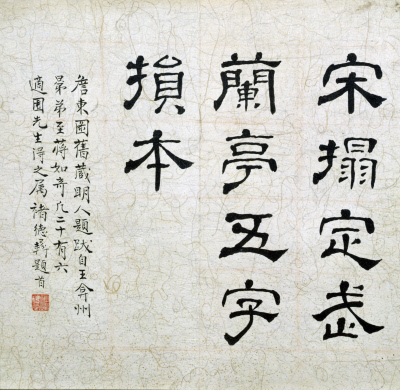 宋搨定武
蘭亭五字
損本
詹東圖舊藏明人題跋自王弇州
昆弟至蔣如奇凡二十有六
適園先生得之属褚德彝題首